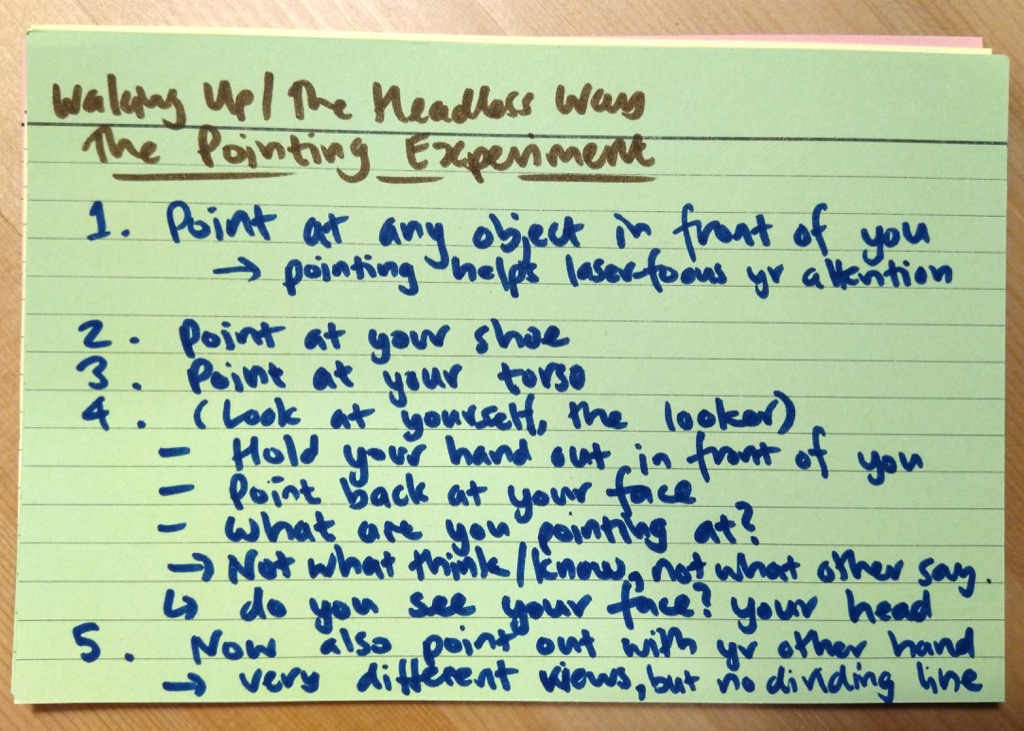 Waking Up / The Headless Way
The Pointing Experiment
1. Point at any object in front of you
→ pointing helps laser-focus yr attention
2. Point at your shoe
3. Point at your torso
4. (Look at yourself, the looker)
- Hold your hand out, in front of you
- Point back at your face
- What are you pointing at?
→ Not what think/know, not what other say.
↳ do you see your face? your head
5. Now also point out with yr other hand
→ very different views, but no dividing line